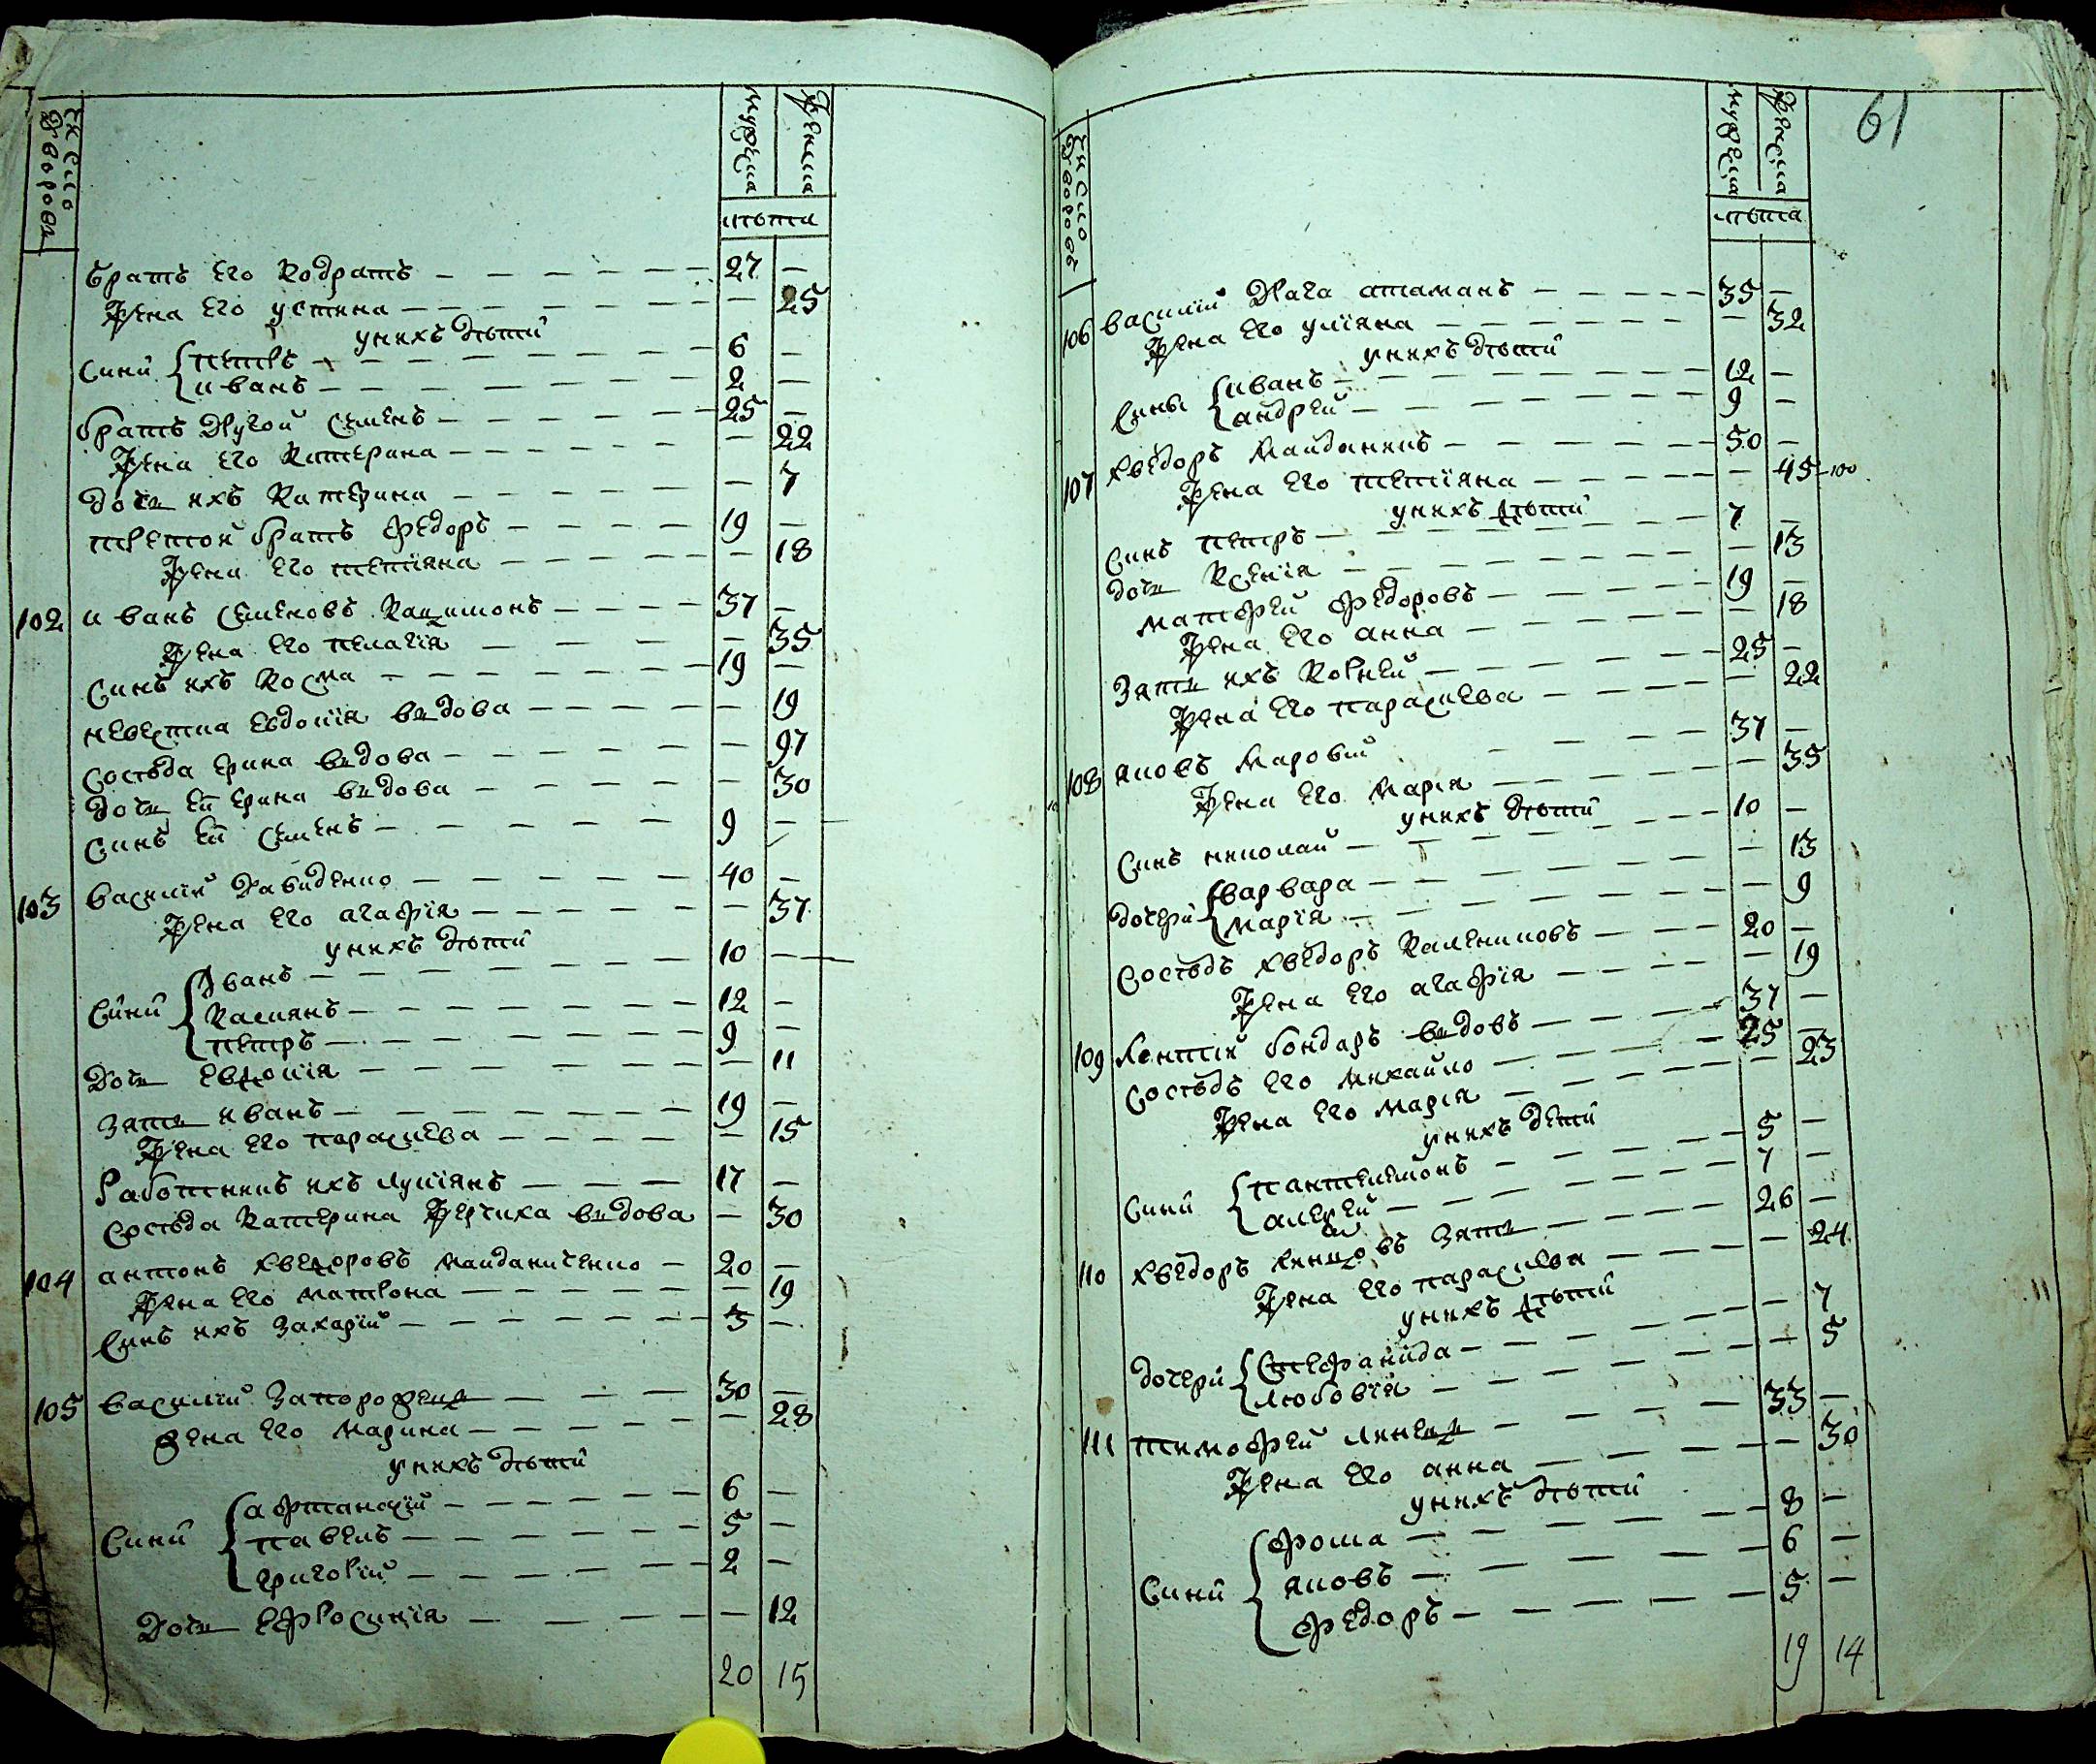 Число дворовъ
мужеска женска
лѣта
братъ его Кодратъ 27 —
жена его устина — 25
у нихъ дѣти
Сини петръ 6 —
иванъ 2 —
братъ другой Семенъ 25 —
жена его Катерина — 22
дочь ихъ Катерина — 7
третой братъ Федоръ 19 —
жена его тетіяна — 18
102 иванъ Семеновъ 37 —
жена его пелагія — 35
Синъ ихъ Косма 19 —
невестка Евдокія вьдова — 19
Сосѣда Ерина вьдова — 97
дочь ей Ерина вьдова — 30
Синъ ей Семенъ 9 —
103 василій давиденко 40 —
жена его агафія — 37
у нихъ дѣти
Сини Іванъ 10 —
Касиянъ 12 —
петръ 9 —
дочь Евдокія — 11
зять иванъ 19 —
жена его параскева — 15
Работникъ ихъ лукіянъ 17 —
Сосѣда Катерина вьдова — 30
104 антонъ хведоровъ майданиченко 20 —
жена его матрона — 19
Синъ ихъ захарій 3 —
105 василій запорожець 30 —
жена его марина — 28
у нихъ дѣти
Сини афтанасій 6 —
павелъ 5 —
григорій 2 —
дочь ефросинія — 12
20 15
61
Число дворовъ
мужеска женска
лѣта
106 василій атаманъ 35 —
жена его уліяна — 32
у нихъ дѣти
Сины иванъ 12 —
андрей 9 —
107 хведоръ майданикъ 50 —
жена его тетіяна — 45 100
у нихъ дѣти
Синъ петръ 7 —
дочь Ксенія — 13
матфей федоровъ 19 —
жена его анна — 18
зять ихъ Корней 25 —
жена его параскева — 22
108 яковъ 37 —
жена его марія — 35
у нихъ дѣти
Синъ николай 10 —
дочери варвара — 13
марія — 9
Сосѣдъ хведоръ Калениковъ 20 —
жена его агафія — 19
109 бондаръ вьдовъ 37 —
Сосѣдъ его михайло 25 —
жена его марія — 23
у нихъ дети
Сини пантелемонъ 5 —
алексей 7 —
110 хведоръ зять 26 —
жена его параскева — 24
у нихъ дѣти
дочери Стефанида — 7
любовія — 5
111 тимофей линець 33 —
жена его анна — 30
у нихъ дѣти
Сини фома 8 —
яковъ 6 —
федоръ 5 —
19 14